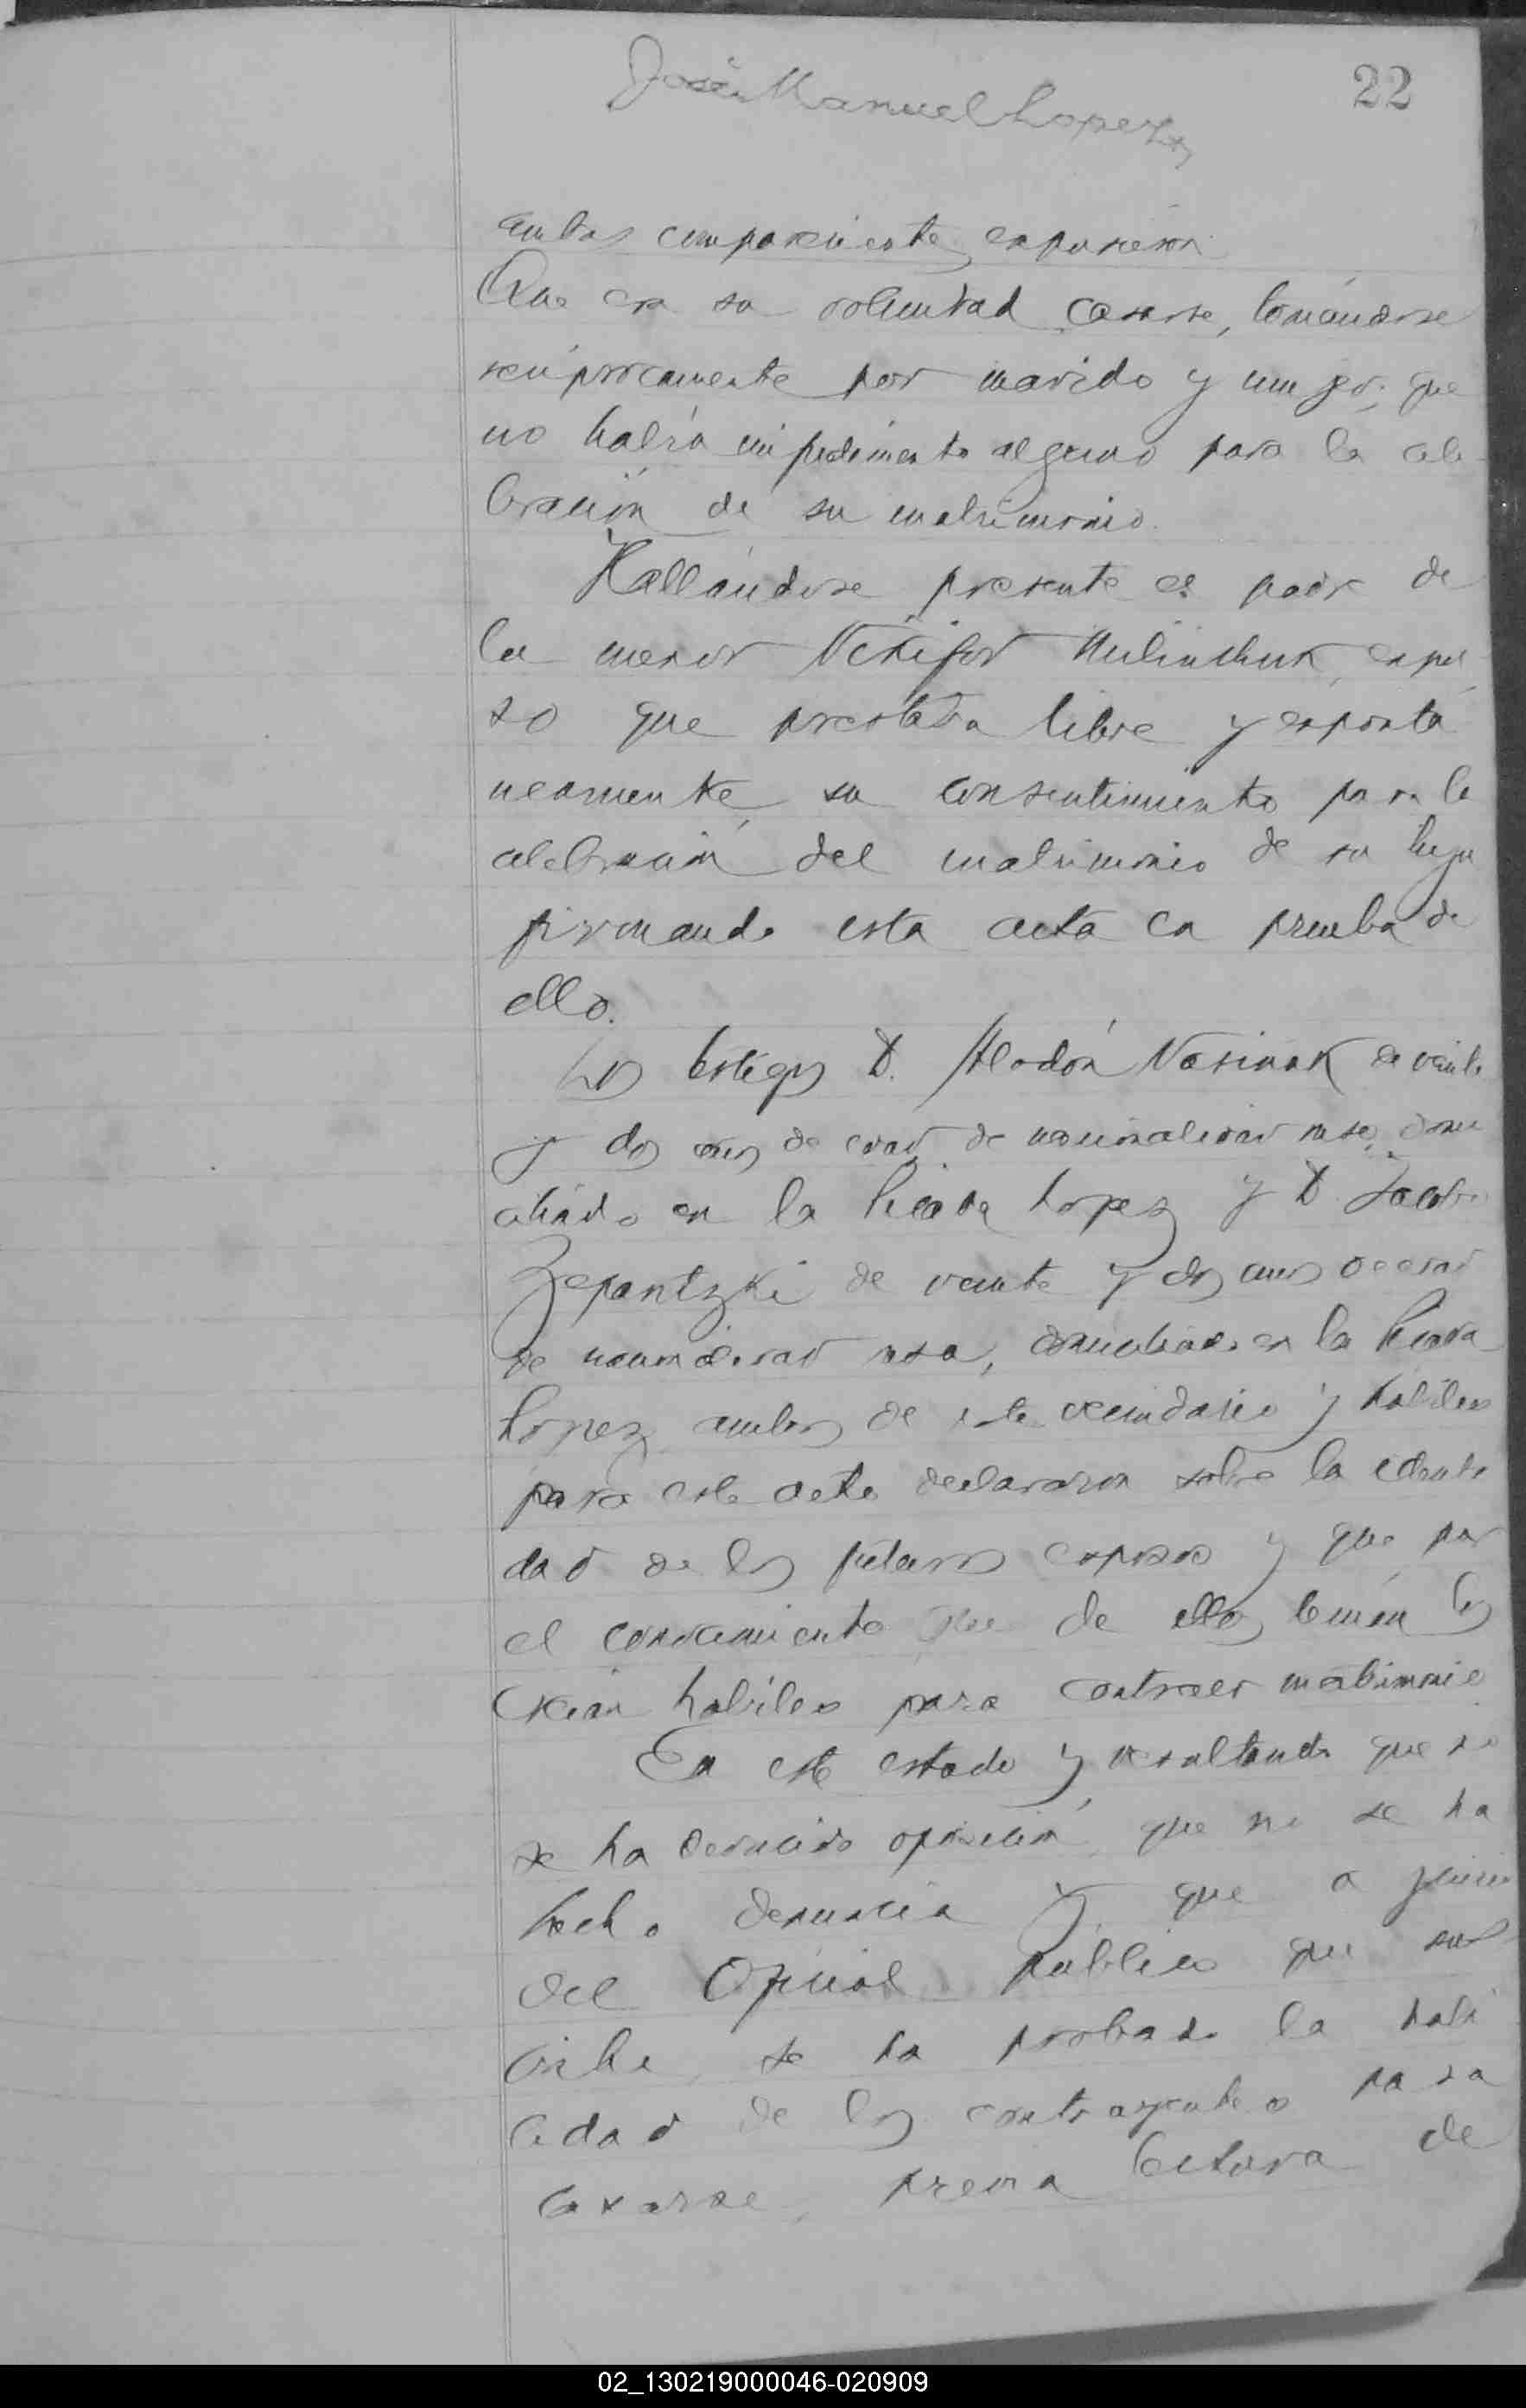 José Manuel Lopez
22
ambos comparecientes expusieron
Que era su voluntad casarse, tomándose
recíprocamente por marido y mujer; que
no había impedimento alguno para la cele-
bración de su matrimonio.
Hallándose presente el padre de
la menor Nekifor Mulinchuk, expu
so que prestaba libre y espontá
neamente, su consentimiento para la
celebración del matrimonio de su hija
firmando esta acta en prueba de
ello.
Los testigos D. Alodón Nosinok de veinte
y dos años de edad, de nacionalidad rusa, domi
ciliado en la Picada Lopez y D. Jacobo
Zepantzki de veinte y dos años de edad
de nacionalidad rusa, domiciliado en la Picada
Lopez ambos de este vecindario y hábiles
para este acto declararon sobre la identi
dad de los futuros esposos y que por
el conocimiento que de ellos tenían los
creían hábiles para contraer matrimonio
En este estado y resultando que no
se ha deducido oposición, que no se ha
hecho denuncia y que a juicio
del Oficial público que sus
cribe, se ha probado la habi
lidad de los contrayentes para
casarse, previa lectura de
02_130219000046-020909